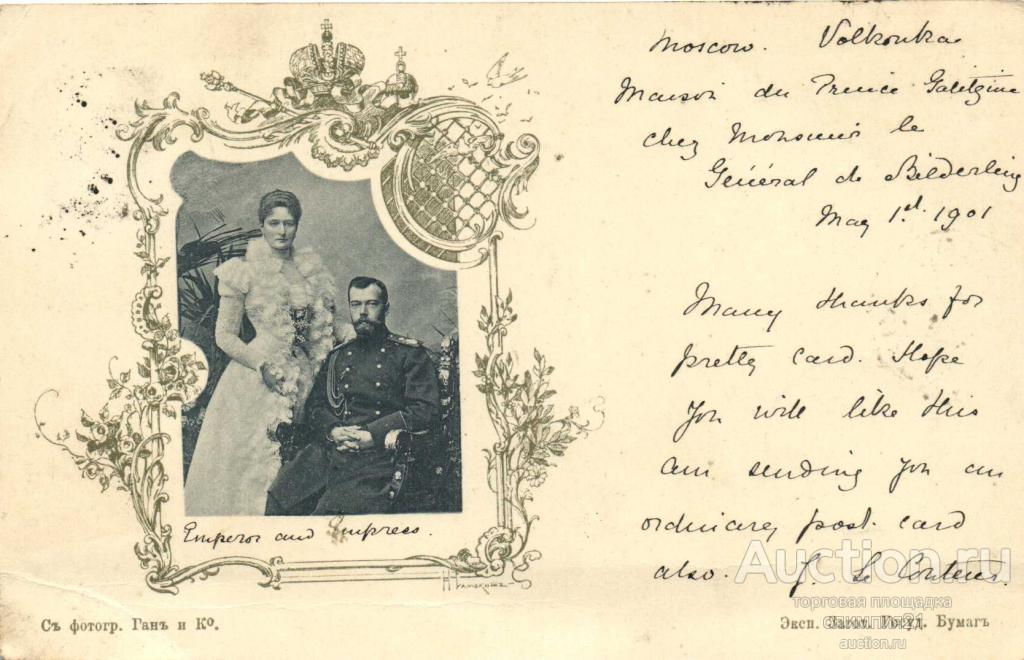 Moscow. Volkonka
Maison du Prince Galitzine
chez Monsieur le
Général de Bilderling
May 1st. 1901
Many thanks for
pretty card. Hope
you will like this
am sending you an
ordinary post card
also. J. Le
Emperor and Empress.
Съ фотогр. Ганъ и Ко.
Эксп. Загот. Госуд. Бумагъ
Auction.ru
торговая площадка
auction.ru